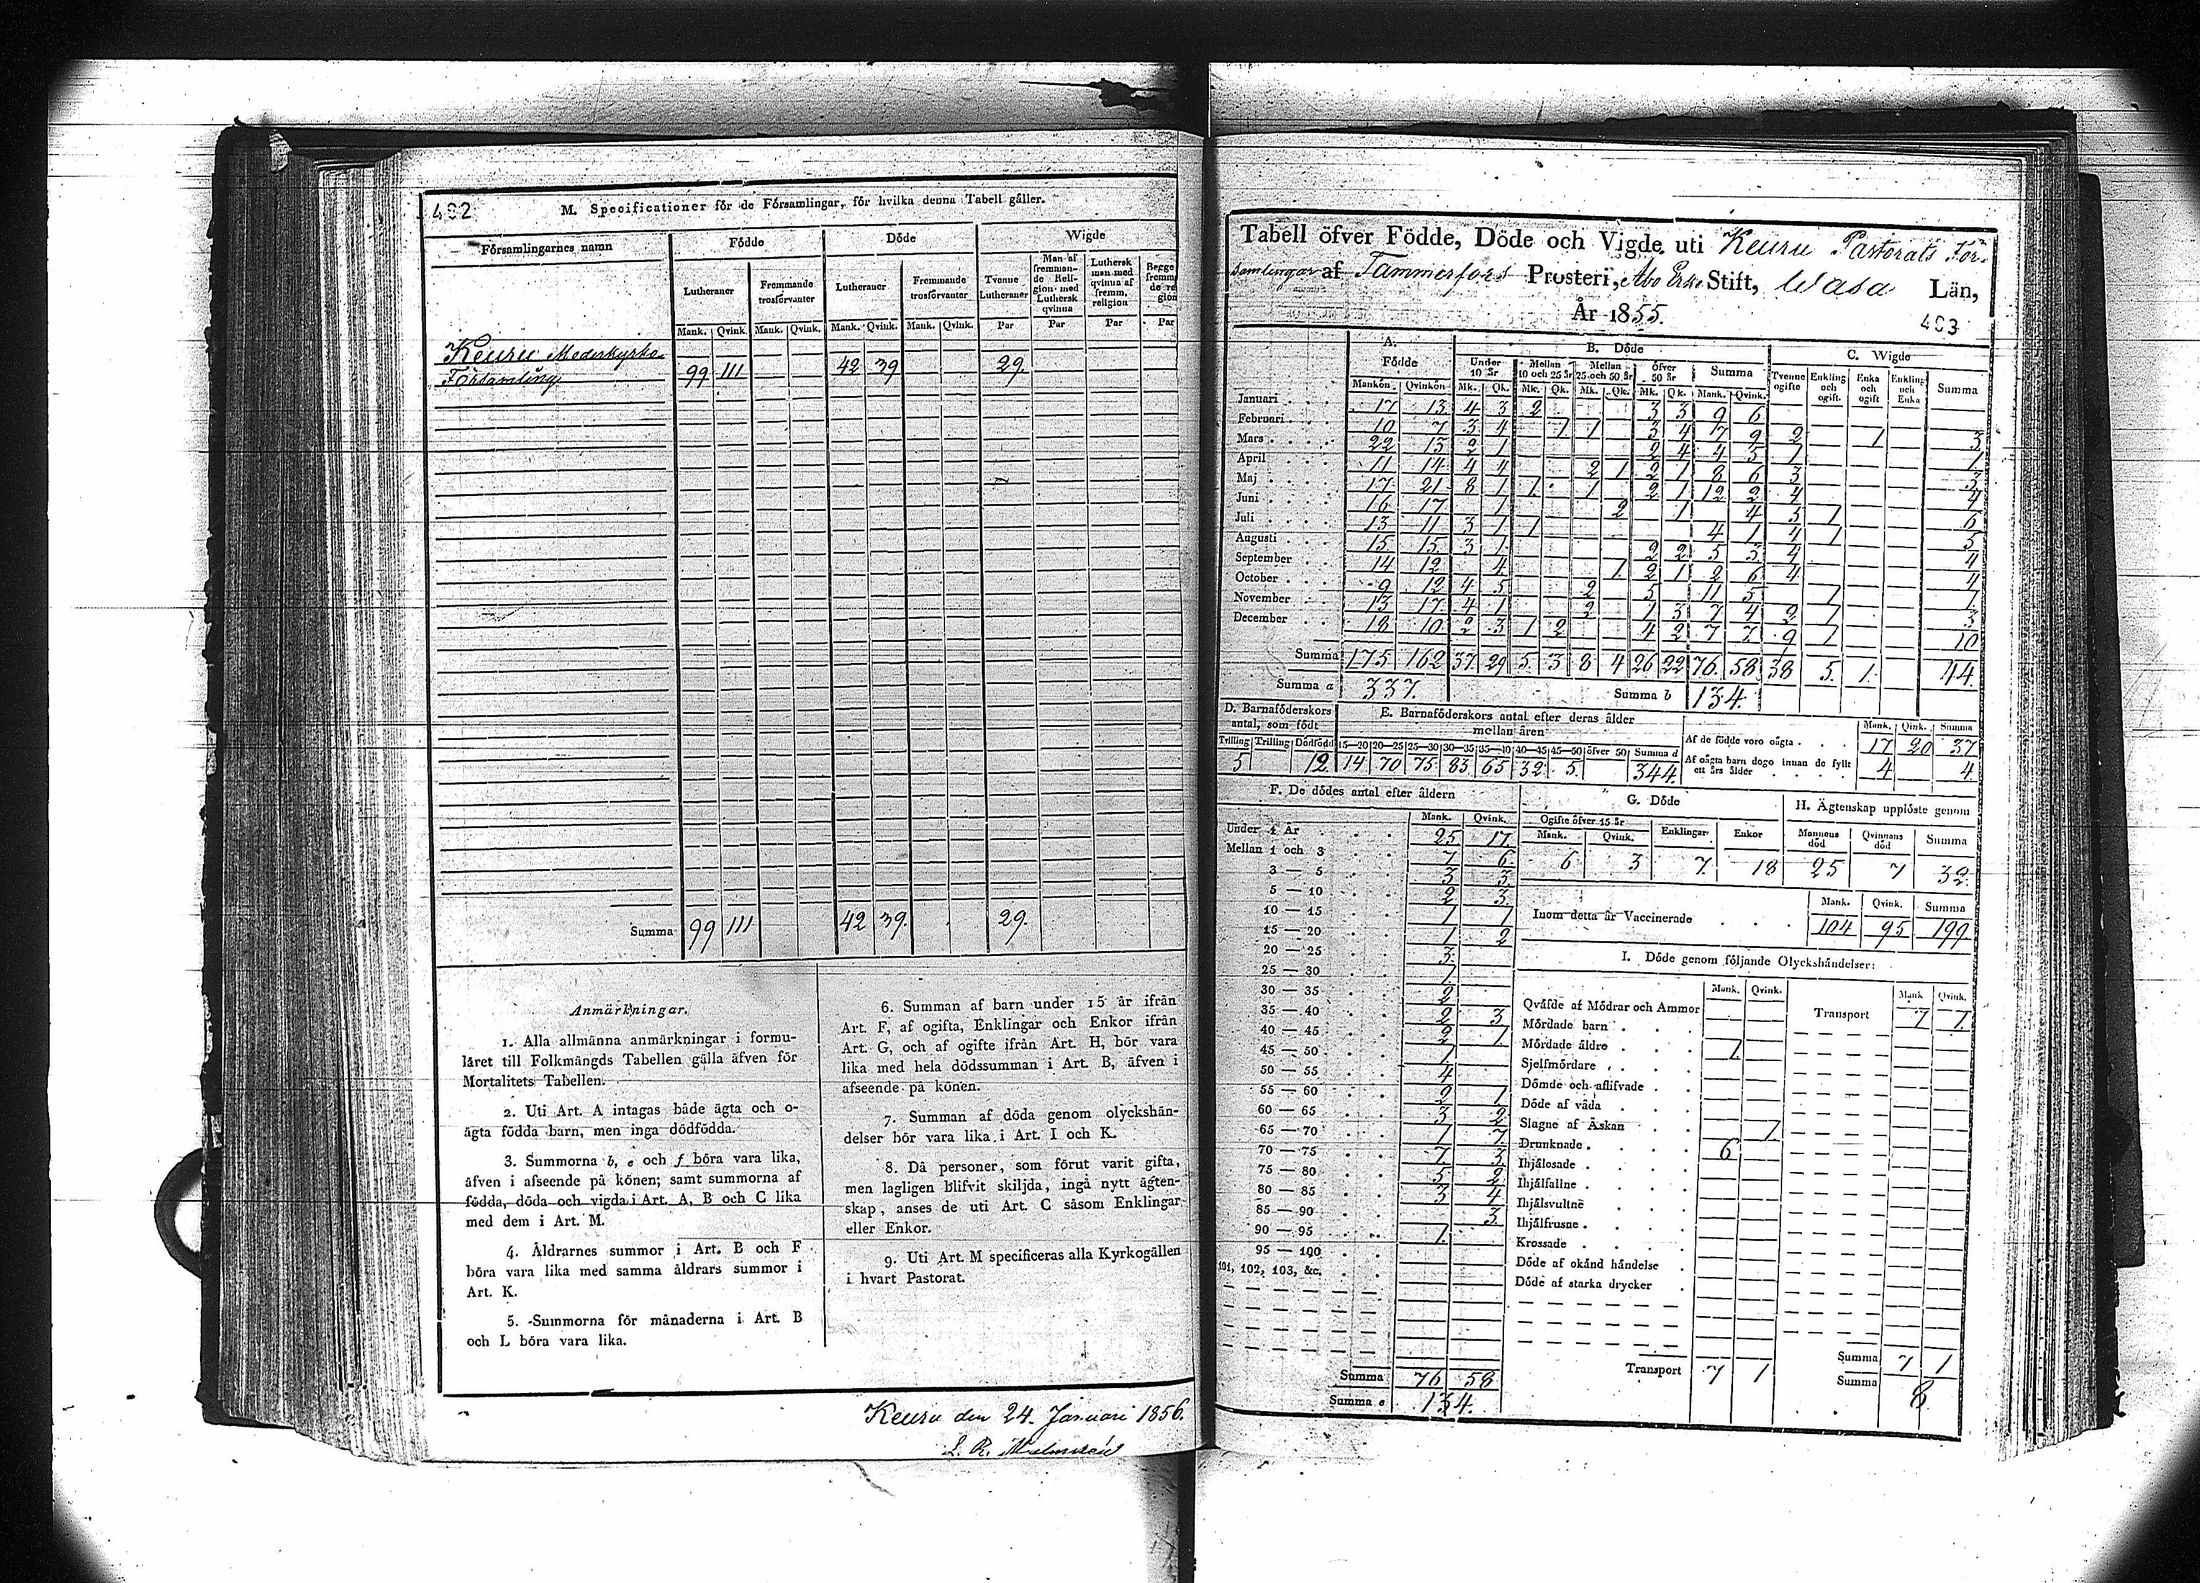 402
M. Specificationer för de Församlingar, för hvilka denna Tabell gäller.
Församlingarnes namn Födde Döde Wigde
Lutheraner Fremmande trosförvanter Lutheraner Fremmande trosförvanter Tvenne Lutheraner Man af fremmande Religion med Luthersk qvinna Luthersk man med qvinna af fremm. religion Begge fremmande religion
Mank. Qvink. Mank. Qvink. Mank. Qvink. Mank. Qvink. Par Par Par Par
Keuru Moderkyrko
Församling 99 111 42 39 29.
Summa 99 111 42 39. 29.
Anmärkningar.
1. Alla allmänna anmärkningar i formu-
läret till Folkmängds Tabellen gälla äfven för
Mortalitets Tabellen.
2. Uti Art. A intagas både ägta och o-
ägta födda barn, men inga dödfödda.
3. Summorna b, e och f böra vara lika,
äfven i afseende på könen; samt summorna af
födda, döda och vigda i Art. A, B och C lika
med dem i Art. M.
4. Åldrarnes summor i Art. B och F
böra vara lika med samma åldrars summor i
Art. K.
5. Summorna för månaderna i Art. B
och L böra vara lika.
6. Summan af barn under 15 år ifrån
Art. F, af ogifta, Enklingar och Enkor ifrån
Art. G, och af ogifte ifrån Art. H, bör vara
lika med hela dödssumman i Art. B, äfven i
afseende på könen.
7. Summan af döda genom olyckshän-
delser bör vara lika i Art. I och K.
8. Då personer, som förut varit gifta,
men lagligen blifvit skiljda, ingå nytt ägten-
skap, anses de uti Art. C såsom Enklingar
eller Enkor.
9. Uti Art. M specificeras alla Kyrkogällen
i hvart Pastorat.
Keuru den 24. Januari 1856.
Tabell öfver Födde, Döde och Vigde uti Keuru Pastorats För-
samlingar af Tammerfors Prosteri, Åbo Erke Stift, Wasa Län,
År 1855.
403
A. Födde B. Döde C. Wigde
Under 10 år Mellan 10 och 25 år Mellan 25 och 50 år öfver 50 år Summa Tvenne ogifte Enkling och ogift. Enka och ogift Enkling och Enka Summa
Mankön Qvinkön Mk. Qk. Mk. Qk. Mk. Qk. Mk. Qk. Mank. Qvink.
Januari 17 13 4 3 2 3 3 9 6
Februari 10 7 3 4 1 1 3 4 7 9 2 1 3
Mars 22 13 2 1 2 4 4 5 1 1
April 11 14 4 4 2 1 2 1 8 6 3 3
Maj 17 21 8 1 1 1 2 1 12 2 4 4
Juni 16 17 1 2 1 4 5 1 6
Juli 13 11 3 1 1 4 1 4 1 5
Augusti 15 15 3 1 2 2 5 3 4 4
September 14 12 4 1 2 1 2 6 4 4
October 9 12 4 5 2 5 11 5 1 1
November 13 17 4 1 2 1 3 7 4 2 1 3
December 18 10 2 3 1 2 4 2 7 7 9 1 10
Summa 175 162 37 29 5 3 8 4 26 22 76 58 38 5 1 44
Summa a 337. Summa b 134.
D. Barnaföderskors antal, som födt E. Barnaföderskors antal efter deras ålder mellan åren
Trilling Trilling Dödfödd 15—20 20—25 25—30 30—35 35—40 40—45 45—50 öfver 50 Summa d
5 12 14 70 75 83 65 32 5. 344.
Mank. Qink. Summa
Af de födde voro oägta 17 20 37
Af oägta barn dogo innan de fyllt ett års ålder 4 4
F. De dödes antal efter åldern
Mank. Qvink.
Under 1 År 25 17
Mellan 1 och 3 7 6
3 — 5 3 3
5 — 10 2 3
10 — 15 1 1
15 — 20 1 2
20 — 25 3
25 — 30 1
30 — 35 2
35 — 40 2 3
40 — 45 2 1
45 — 50 1
50 — 55 4
55 — 60 2 1
60 — 65 3 2
65 — 70 1 7
70 — 75 7 3
75 — 80 5 2
80 — 85 3 4
85 — 90 3
90 — 95 1
95 — 100
101, 102, 103, &c.
Summa 76 58
Summa e 134.
G. Döde H. Ägtenskap upplöste genom
Ogifte öfver 15 år Enklingar Enkor Mannens död Qvinnans död Summa
Mank. Qvink.
6 3 7. 18 25 7 32
Mank. Qvink. Summa
Inom detta år Vaccinerade 104 95 199
I. Döde genom följande Olyckshändelser:
Mank. Qvink. Mank Qvink.
Qväfde af Mödrar och Ammor Transport 7 1
Mördade barn
Mördade äldre 1
Sjelfmördare
Dömde och aflifvade
Döde af våda
Slagne af Åskan 1
Drunknade 6
Ihjälosade
Ihjälfallne
Ihjälsvultne
Ihjälfrusne
Krossade
Döde af okänd händelse
Döde af starka drycker
Transport 7 1 Summa 7 1
Summa 8